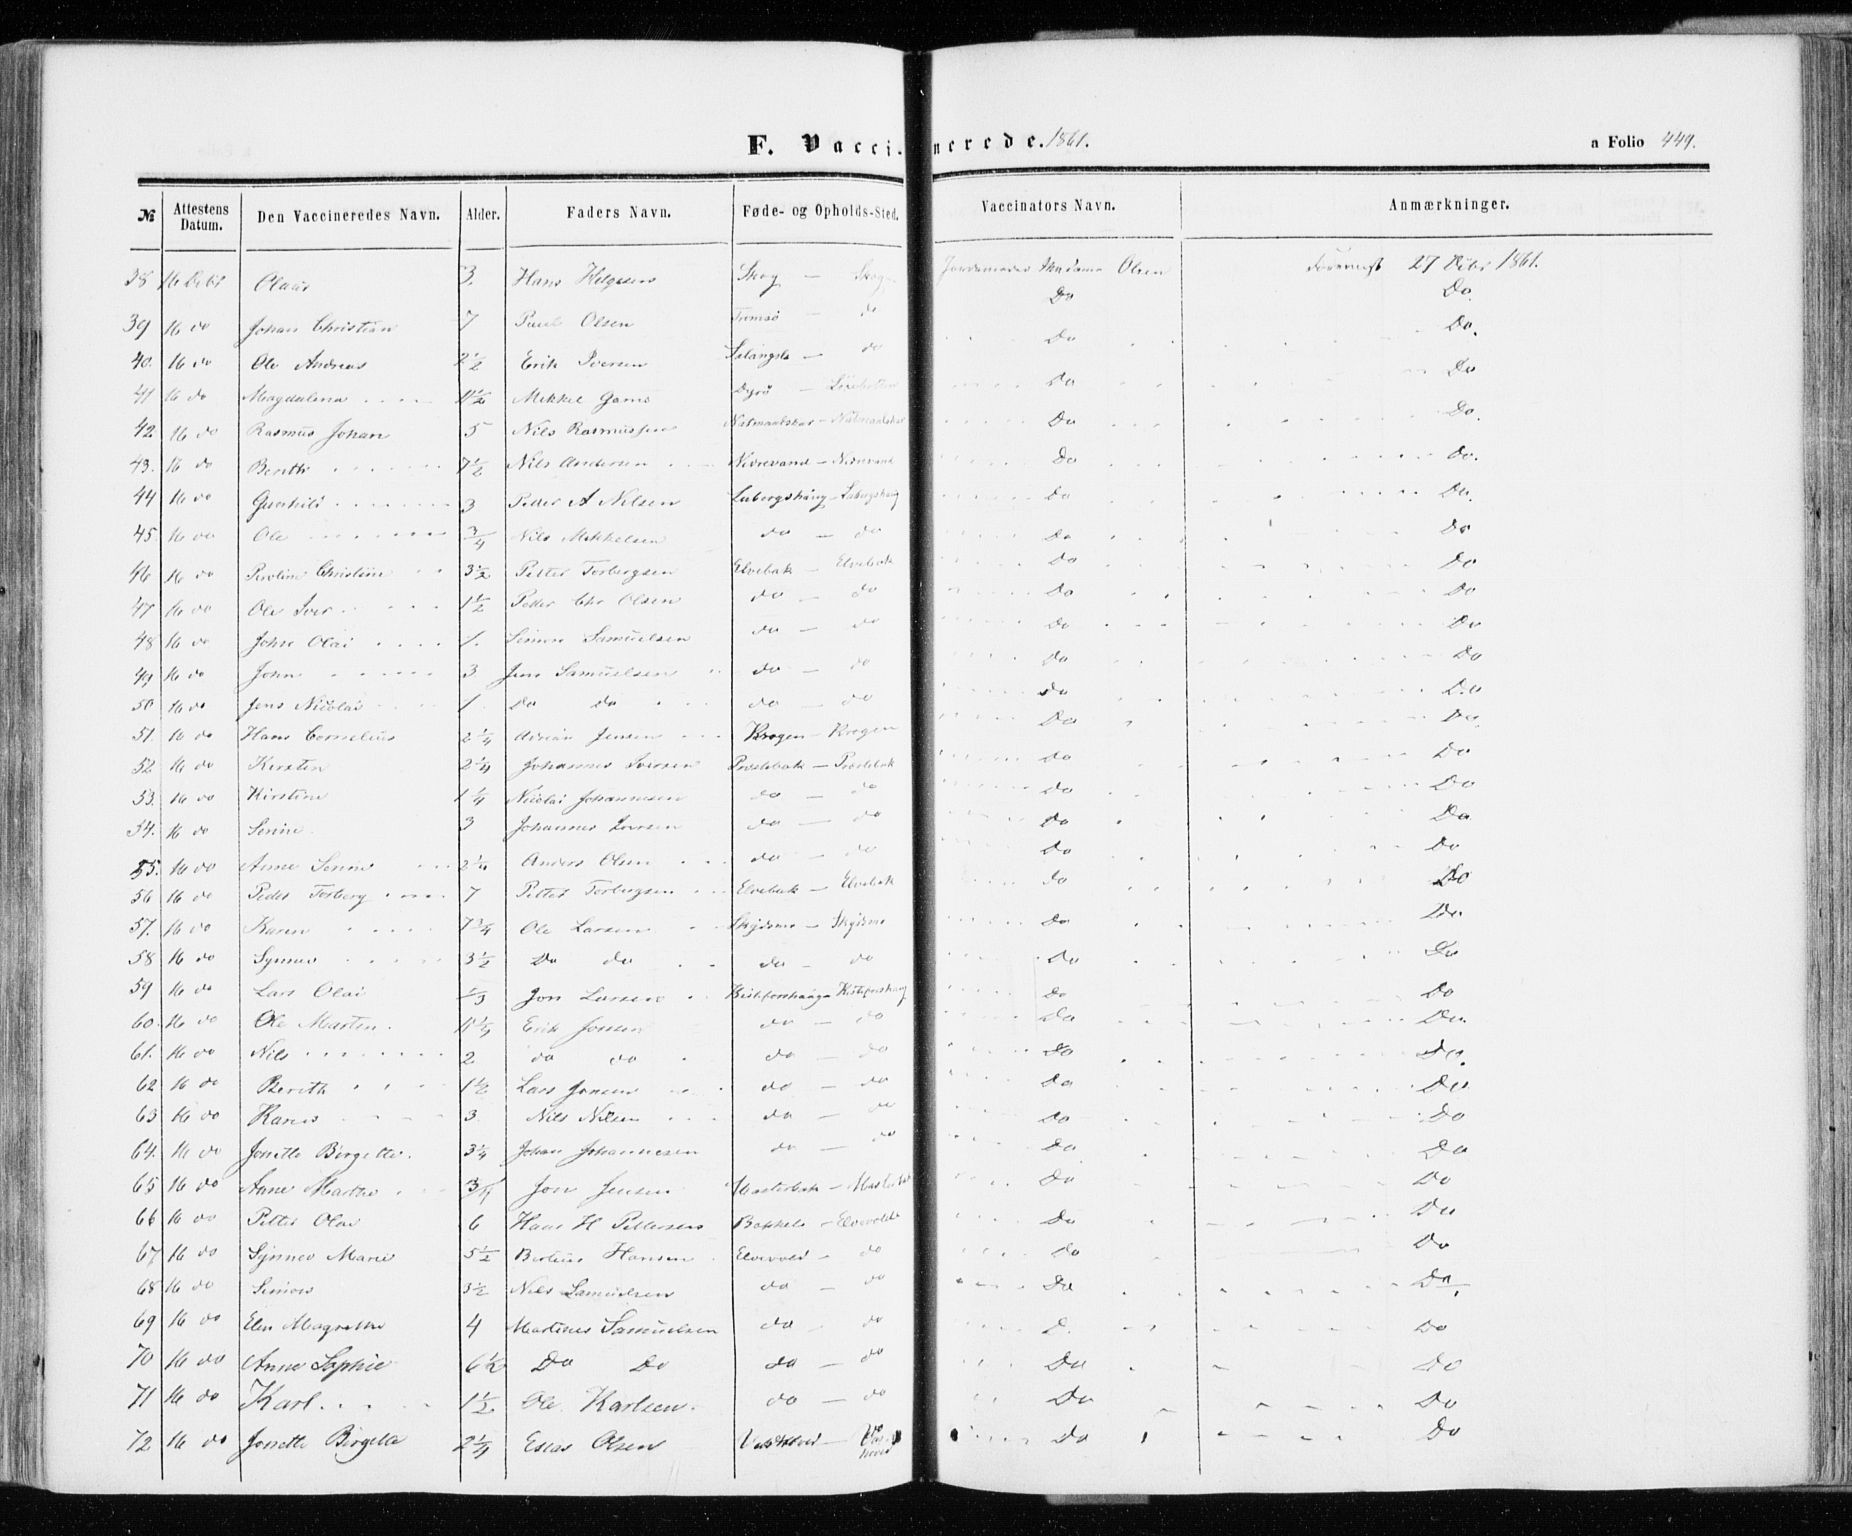 F. Vaccinerede. 1861. a Folio 449.
№ Attestens Datum. Den Vaccineredes Navn. Alder. Faders Navn. Føde- og Opholds-Sted. Vaccinators Navn. Anmærkninger.
38 16 Olaus 3. Hans Skog — Skog Madame Olsen 27 1861.
39 16 do Johan Christian 7 Paul Olsen Tromsø — do Do Do.
40. 16 do Ole Andreas 2½ Erik Iversen — do Do Do.
41 16 do Magdalena Mikkel Dyrø — Do Do
42 16 do Rasmus Johan 5 Nils Rasmussen Do Do.
43. 16 do Berith 7½ Nils Andersen Nervevand — Do Do.
44 16 do 3 Peder A Nilsen Do Do.
45. 16 do Ole ¾ Nils Mikkelsen do — do Do Do
46 16 do Christine 3½ Petter Torbergsen Elvebak — Elvebak Do Do
47 16 do Ole Iver 1½ Peder Chr Olsen do — do Do Do
48 16 do John Olai 1. Simon Samuelsen do — do Do Do
49 16 do John 3 Jens Samuelsen do — do Do Do
50 16 do Jens Nicolai 1 Do do do — do Do Do
51. 16 do Hans Cornelius 2¼ Adrian Jensen Krogen — Krogen Do Do.
52 16 do Kirsten 2¼ Johannes Iversen Prestebak — Prestebak Do Do
53. 16 do Kirstine 1¼ Nicolai Johannesen do — do Do Do
54. 16 do Serine 3 Johannes Iversen do — do Do Do
55. 16 do Anne Serine 2¼ Anders Olsen do — do Do Do
56 16 do Peder Torberg 7 Petter Torbergsen Elvebak — Elvebak Do Do
57. 16 do Karen 7¾ Ole Larsen Skjidsmo — Skjidsmo Do Do
58 16 do Synnev 3½ Do do do — do Do Do
59 16 do Lars Olai Jon Larsen Do Do
60. 16 do Ole Martin. Erik Jonsen do — do Do Do.
61. 16 do Nils 2 do do do — do Do Do.
62 16 do Berith 1½ Lars Jonsen do — do Do Do.
63 16 do 3 Nils Nilsen do — do Do Do
64. 16 do Jonette Birgitte. 3¼ Johan Johannesen do — do Do Do
65 16 do Anne Marthe ¾ Jon Jensen Do Do
66 16 do Petter Olai 6 Hans H Pettersen — Elvevold Do Do
67 16 do Synnev Marie 5½ Hansen Elvevold — do Do Do
68 16 do Simon 3½ Nils Samuelsen do — do Do Do.
69 16 do Elen Magrethe 4 Martines Samuelsen do — do D. Do
70 16 do Anne Sophie 6½ Do Do do — do Do Do
71 16 do Karl 1½ Ole Karlsen. do — do Do Do
72 16 do Jonette Birgitte 2¼ Esias Olsen Do Do